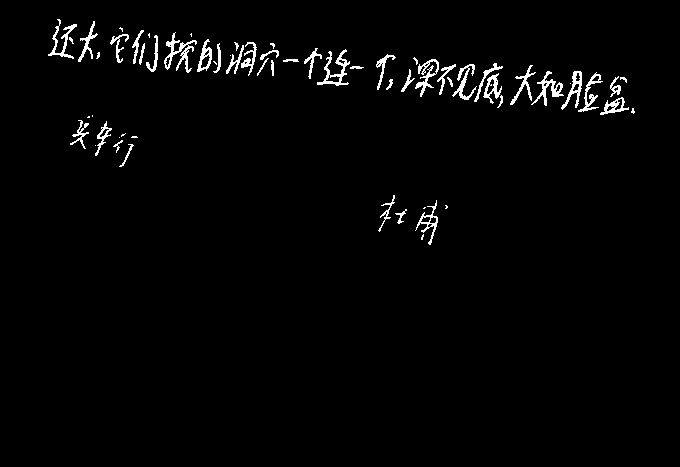 还大,它们挖的洞穴一个连一个,深不见底,大如脸盆.
兵车行
杜甫